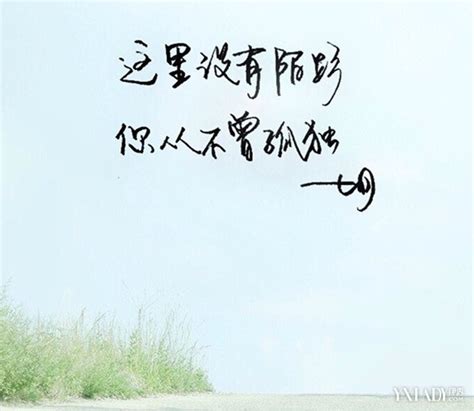 这里没有陌路
你从不曾孤独
—七月
YXLADY